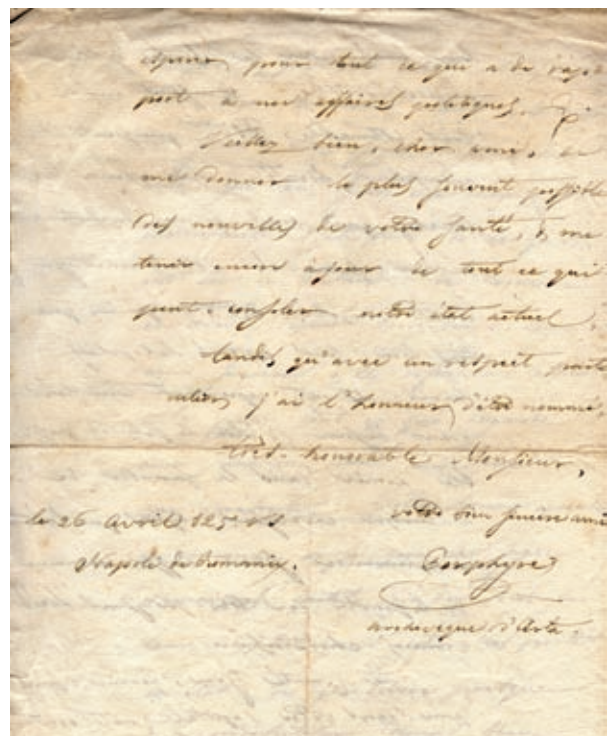 pour tout ce qui a de rap-
port à nos affaires politiques.
Veillez bien, cher ami, de
me donner le plus souvent possible
des nouvelles de votre santé, & me
tenir encore à jour de tout ce qui
peut consoler notre état actuel,
tandis qu'avec un respect parti-
culier j'ai l'honneur d'être nommé,
très-honorable Monsieur,
votre bien sincère ami
le 26 Avril
Napoli de Romanie.
Porphyre
archevêque d'Arta.